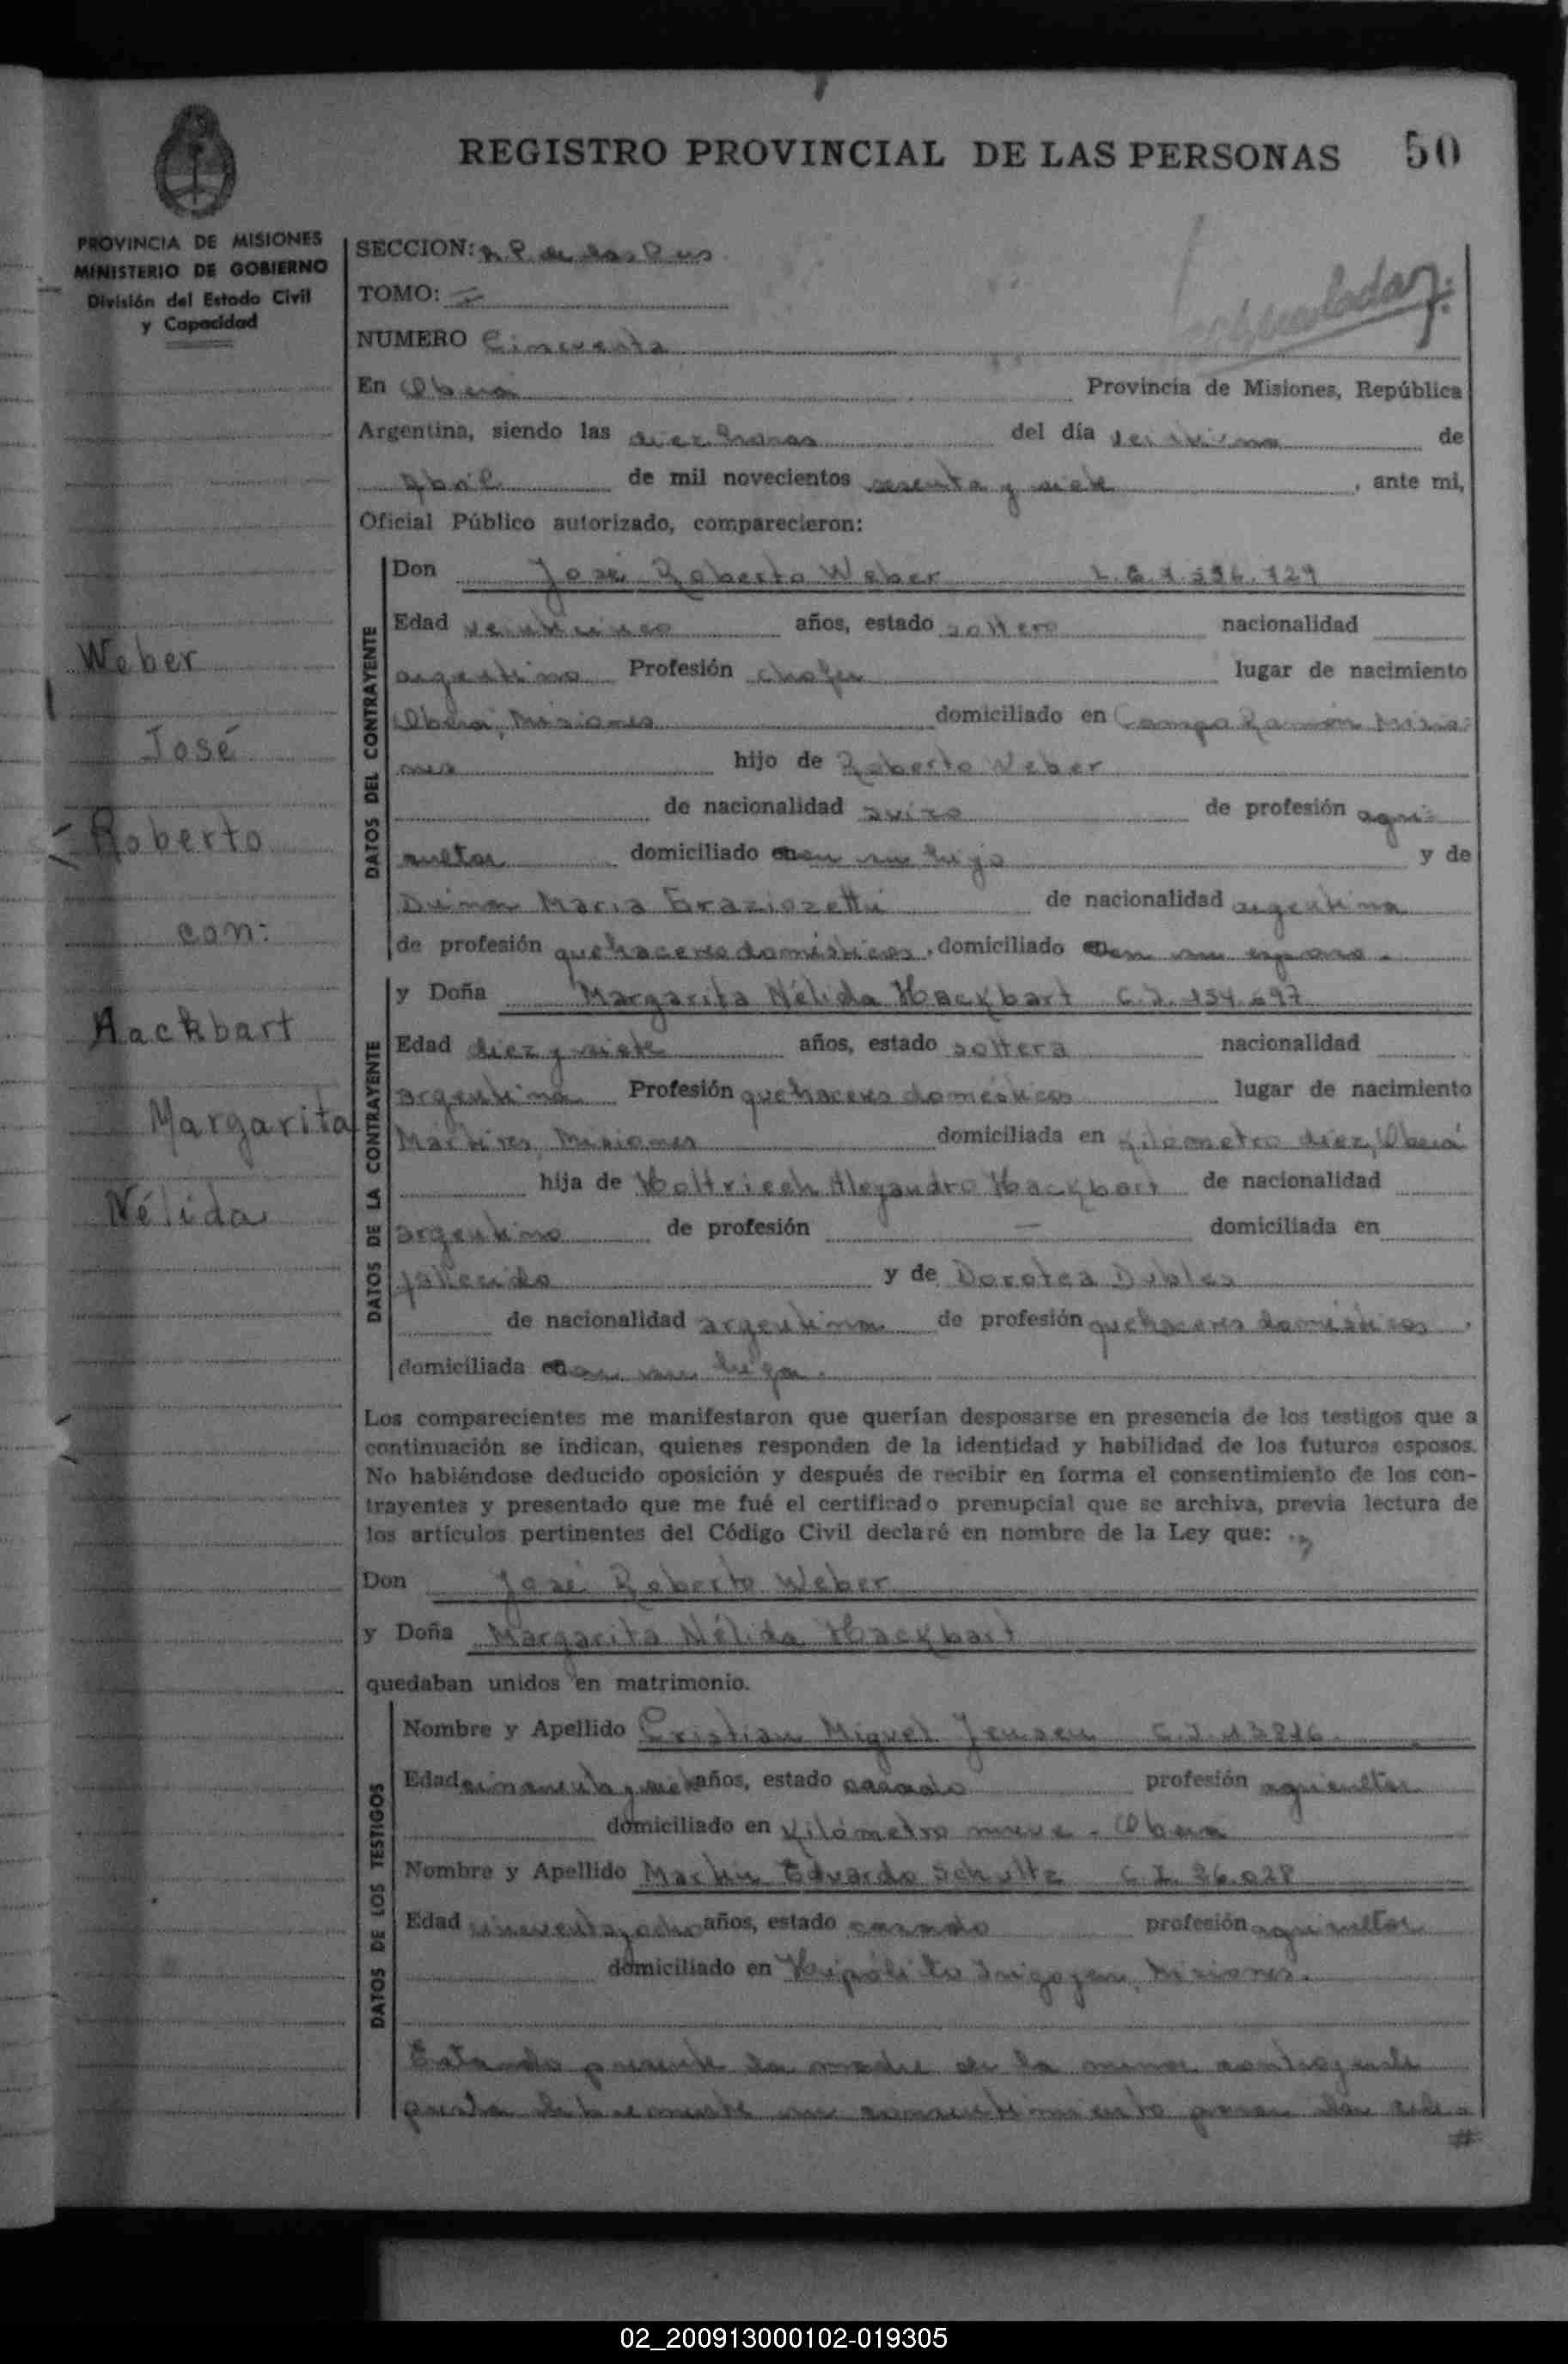 REGISTRO PROVINCIAL DE LAS PERSONAS 50
PROVINCIA DE MISIONES
MINISTERIO DE GOBIERNO
División del Estado Civil
y Capacidad
Weber
José
Roberto
con:
Hackbart
Margarita
Nélida
SECCION: R. P. de las
TOMO: I
NUMERO Cincuenta
En Oberá Provincia de Misiones, República
Argentina, siendo las diez horas del día de
Abril de mil novecientos sesenta y siete, ante mi,
Oficial Público autorizado, comparecieron:
DATOS DEL CONTRAYENTE
Don José Roberto Weber
Edad veinticinco años, estado soltero nacionalidad
argentino Profesión chofer lugar de nacimiento
Oberá, Misiones domiciliado en Campo Ramón Misio-
nes hijo de Roberto Weber
de nacionalidad suizo de profesión agri-
cultor domiciliado con su hijo y de
María de nacionalidad argentina
de profesión quehaceres domésticos, domiciliado con su esposo.
DATOS DE LA CONTRAYENTE
y Doña Margarita Nélida Hackbart C.I. 154.697
Edad diez y siete años, estado soltera nacionalidad
argentina Profesión quehaceres domésticos lugar de nacimiento
Mártires, Misiones domiciliada en Kilómetro diez, Oberá
hija de Alejandro Hackbart de nacionalidad
argentino de profesión — domiciliada en
fallecido y de Dorotea
de nacionalidad argentina de profesión quehaceres domésticos,
domiciliada con su hija.
Los comparecientes me manifestaron que querían desposarse en presencia de los testigos que a
continuación se indican, quienes responden de la identidad y habilidad de los futuros esposos.
No habiéndose deducido oposición y después de recibir en forma el consentimiento de los con-
trayentes y presentado que me fué el certificado prenupcial que se archiva, previa lectura de
los artículos pertinentes del Código Civil declaré en nombre de la Ley que:
Don José Roberto Weber
y Doña Margarita Nélida Hackbart
quedaban unidos en matrimonio.
DATOS DE LOS TESTIGOS
Nombre y Apellido Cristian Miguel Jensen C.I. 13816
Edad años, estado casado profesión agricultor
domiciliado en Kilómetro nueve - Oberá
Nombre y Apellido Martin Eduardo Schultz C.I. 26.028
Edad cincuenta y ocho años, estado casado profesión agricultor
domiciliado en Hipólito Irigoyen, Misiones.
Estando presente la madre de la menor contrayente
presta libremente su consentimiento para
#
02_200913000102-019305